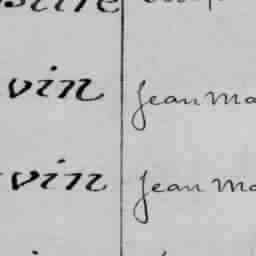 vin Jean Ma
vin Jean Ma